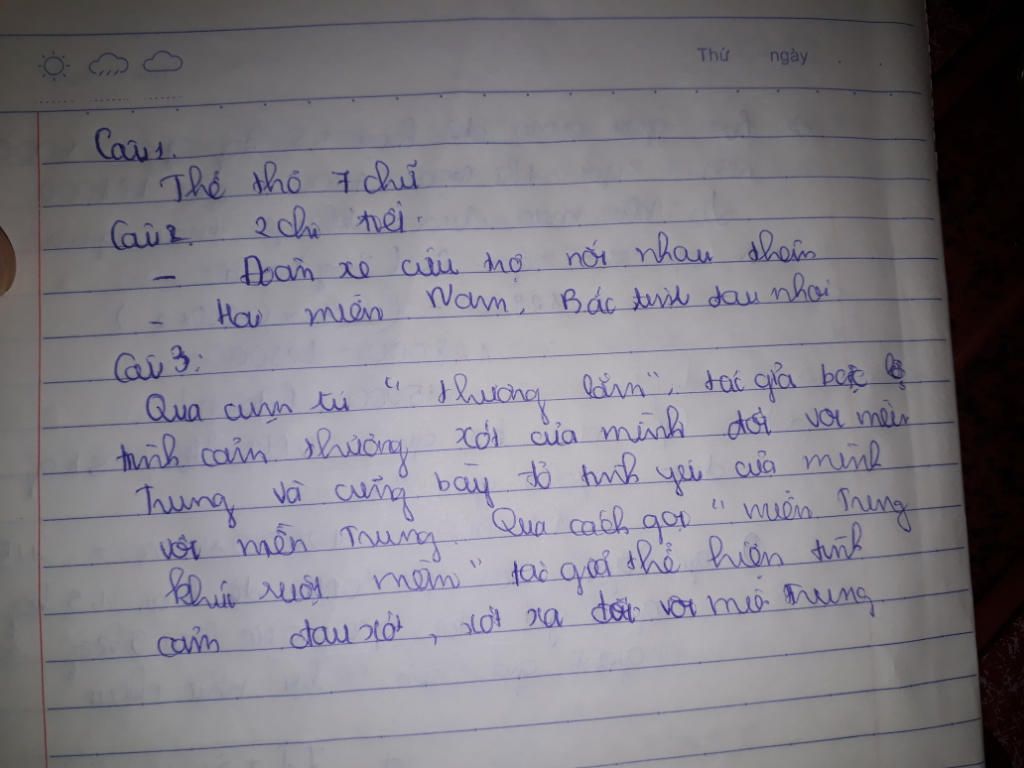 Thứ ngày
Câu 1.
Thể thơ 7 chữ
Câu 2. 2 chi
- Đoàn xe cứu trợ nối nhau
- Hai miền Nam, Bắc
Câu 3:
Qua cụm từ "thương lắm", tác giả bộc lộ
tình cảm thương xót của mình đối với miền
Trung và cũng bày tỏ tình yêu của mình
với miền Trung Qua cách gọi "miền Trung
khúc ruột mềm" tác giả thể hiện tình
cảm đau xót, xót xa đối với Trung